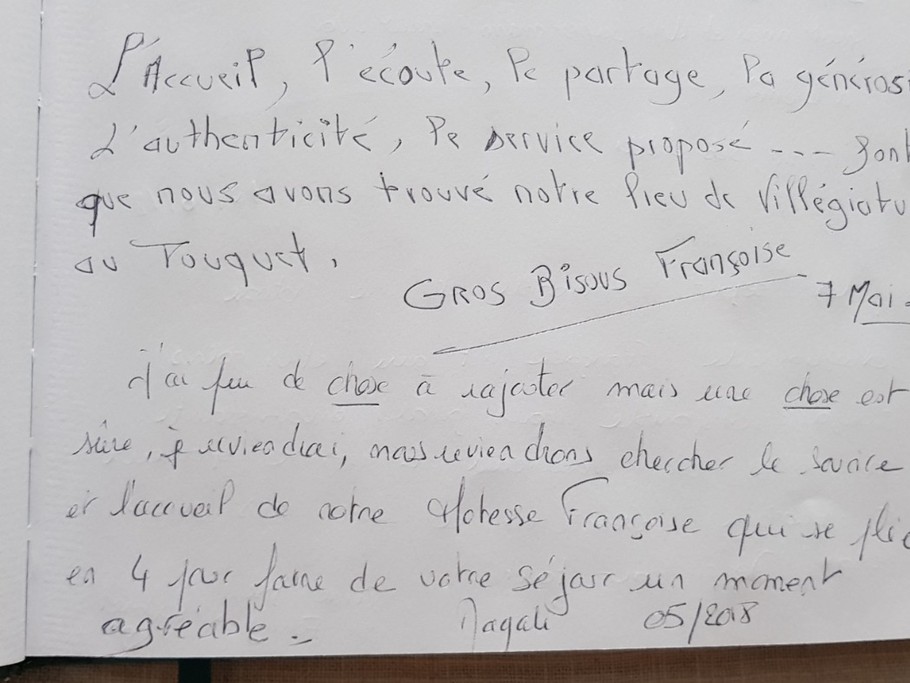 L'Accueil, l'écoute, le partage, la généros
L'authenticité, le service proposé --- Sont
que nous avons trouvé notre lieu de Villégiatu
au Touquet.
GROS BISOUS Françoise
7 Mai.
J'ai peu de chose à rajouter mais une chose est
sûre, je reviendrai, nous reviendrons chercher le service
et l'accueil de notre Hotesse Françoise qui se plie
en 4 pour faire de votre séjour un moment
agréable.-
Magali 05/2018